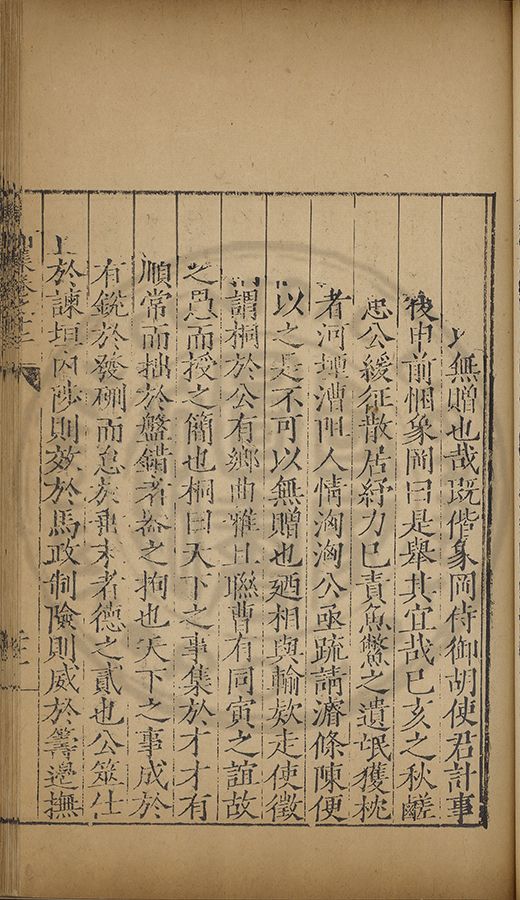 以無贈也哉既偕象岡侍御胡使君計事
後申前悃象岡曰是舉其宜哉已亥之秋鹺
忠公緩征散居紓力巳責魚鱉之遺氓獲枕
者河堙漕阻人情洶洶公亟疏請濬條陳便
以之是不可以無贈也廼相與輸欵走使徵
謂桐於公有鄉曲雅且聯曹有同寅之誼故
之愚而授之簡也桐曰天下之事集於才才有
順常而拙於盤錯者器之拘也天下之事成於
有銳於發硎而怠於垂末者德之貳也公筮仕
上於諫垣內陟則效於馬政制險則威於籌邊撫